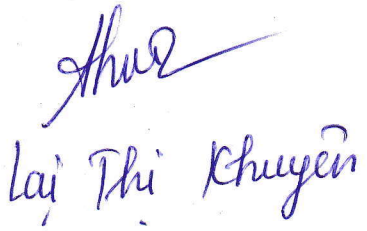 Lại Thị Khuyên